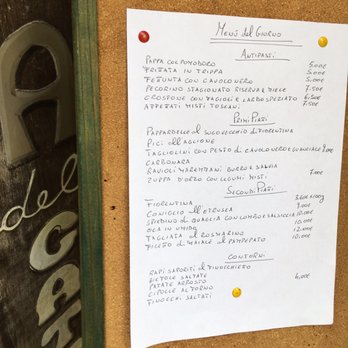 A
del
GAT
Menù del Giorno
Antipasti
Pappa col pomodoro 5.00€
Frittata in trippa 5.00€
Fetunta con cavolo nero 5.00€
Pecorino stagionato riserva e miele 7.50€
Crospone con fagioli e lardo speziato 6.50€
Affettati misti toscani 7.50€
Primi Piatti
Pappardelle al sugo vecchio di fiorentina
Pici all'aglione
Tagliolini con pesto di cavolo nero e guanciale
Carbonara
Ravioli maremmani burro e salvia
Zuppa d'orzo con legumi misti 7.00€
Secondi Piatti
Fiorentina 3.60€ 100g
Coniglio all'etrusca 9.00€
Spiedino di quaglia con lombo e salsiccia 10.00€
Oca in umido 10.00€
Tagliata al rosmarino 12.00€
Filetto di maiale al 10.00€
Contorni
Rapi saporiti al finocchieto
Bietole saltate
Patate arrosto 4.00€
Cipolle al forno
Finocchi saltati